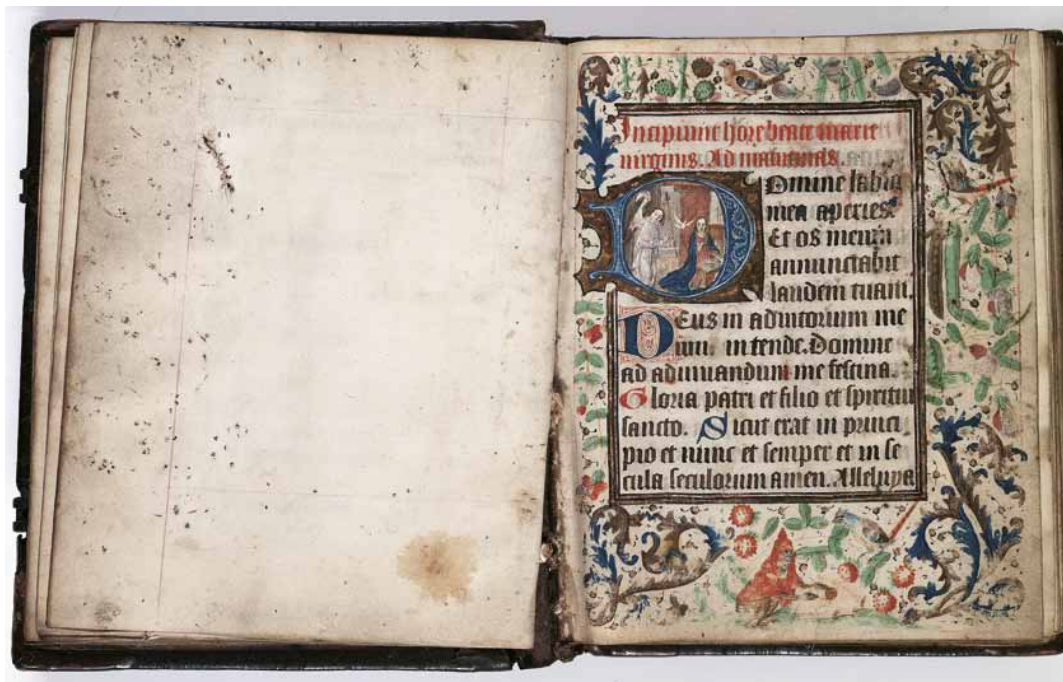 14
Incipiunt hore beate marie
virginis. Ad matutinas.
Domine labia
mea aperies.
Et os meum
annunciabit
laudem tuam.
DEus in adiutorium me
um intende. Domine
ad adiuuandum me festina.
Gloria patri et filio et spiritui
sancto. Sicut erat in princi
pio et nunc et semper et in se
cula seculorum amen. Alleluya